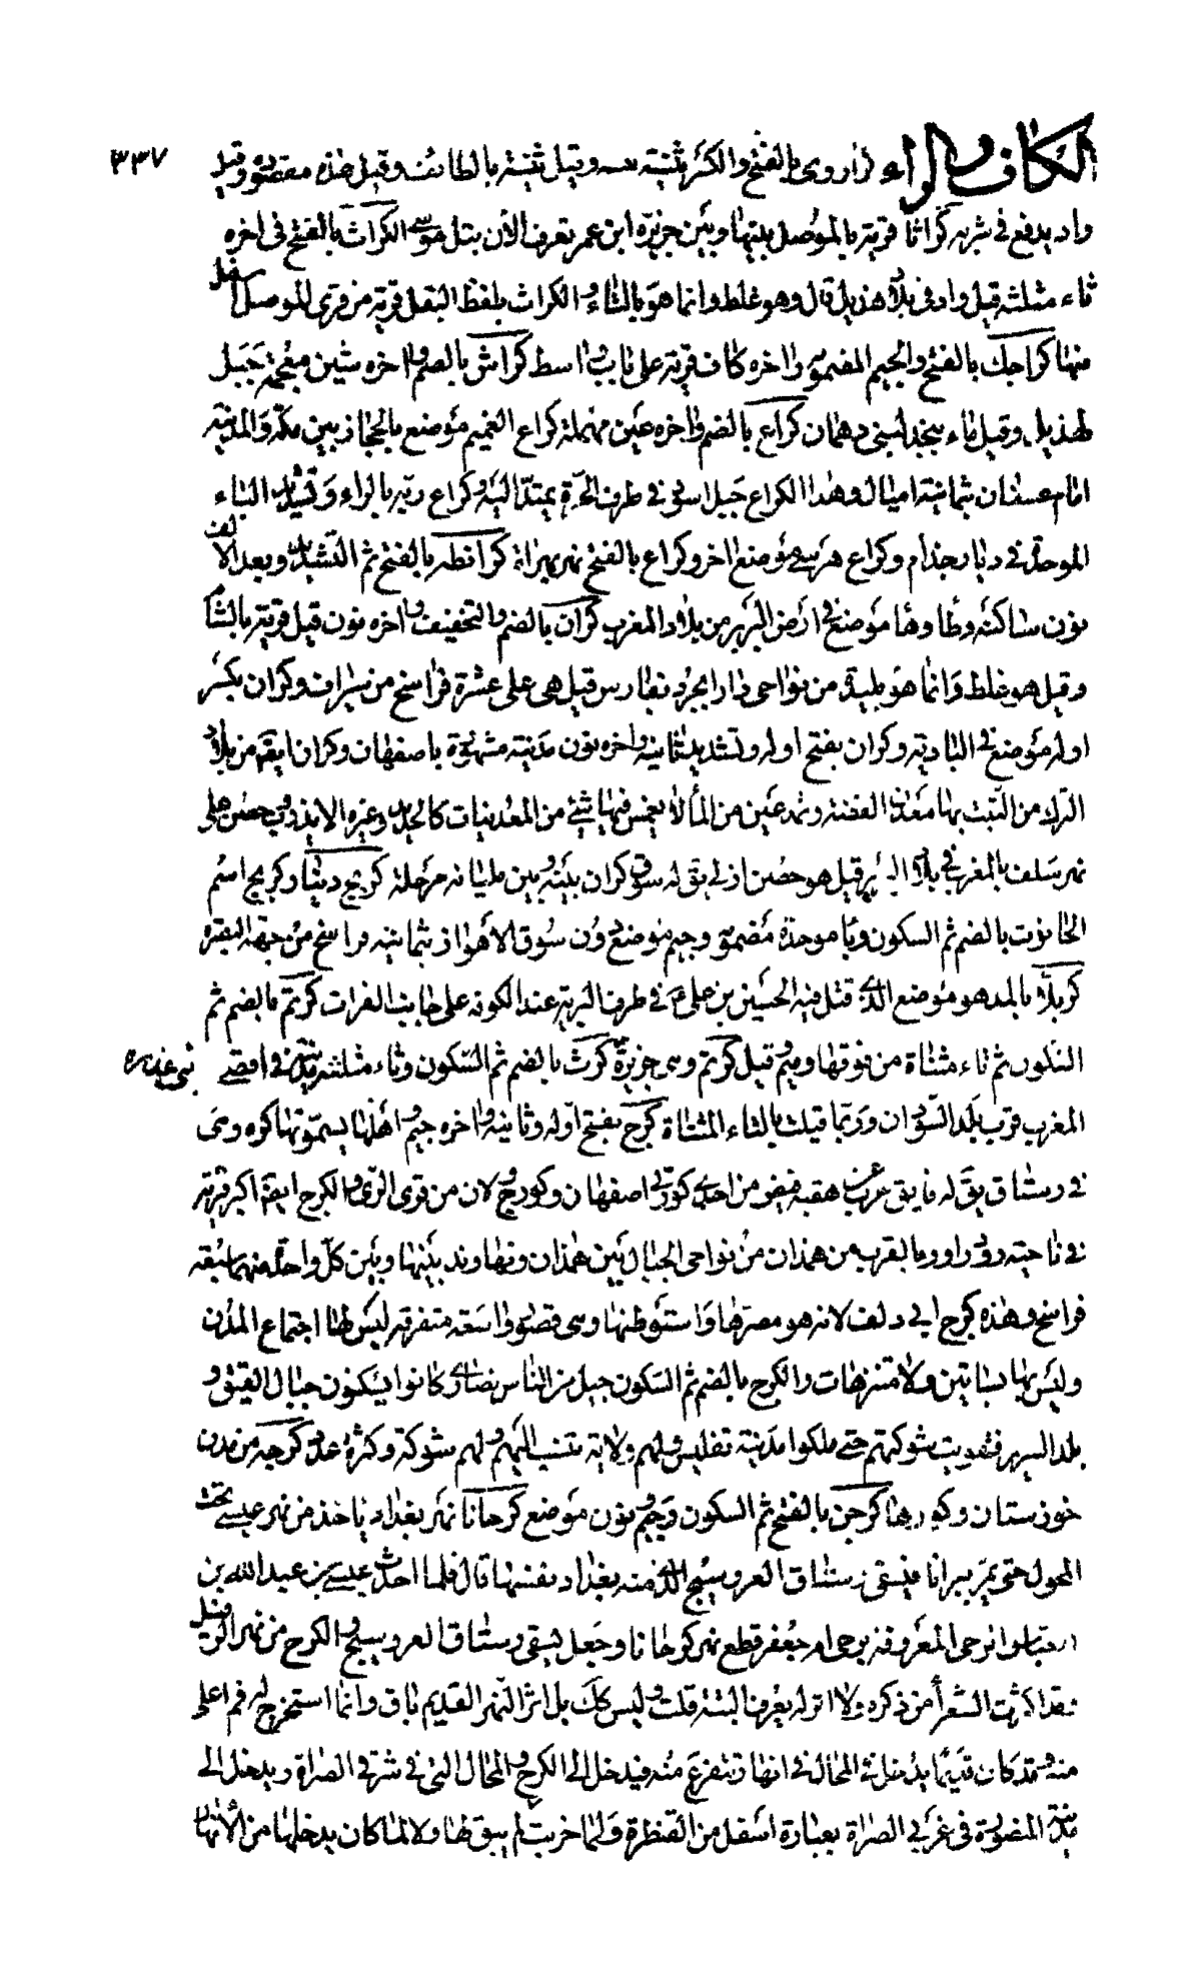 ٣٣٧
الكاف والراء كرا روى بالفتح والكسر ثنية وقيل ثنية بالطائف وقيل هذه مقصورة وقيل
واد يدفع في شربه كراثا قرية بالموصل بينها وبين جزيرة ابن عمر تعرف الآن بتل موسى الكراث بالفتح في اخره
ثاء مثلثة قيل واد في بلاد هذيل قال وهو غلط وانما هو بالتاء والكراث بلفظ البقل قرية من قرى الموصل اسفل
منها كراجك بالفتح والجيم المضمومة واخره كاف قرية على باب واسط كراش بالضم واخره شين معجمة جبل
لهذيل وقيل ماء بنجد لبني دهمان كراع بالضم واخره عين مهملة كراع الغميم موضع بالحجاز بين مكة والمدينة
امام عسفان بثمانية اميال وهذا الكراع جبل اسود في طرف الحرة يمتد اليه وكراع ربة بالراء وتشديد الباء
الموحدة في ديار جذام وكراع هرشى موضع اخر وكراع بالفتح نهر بهراة كرانطه بالفتح ثم التشديد وبعد الالف
نون ساكنة وطا وها موضع في ارض البربر من بلاد المغرب كران بالضم والتخفيف واخره نون قيل قرية بالشام
وقيل هو غلط وانما هو بليدة من نواحي دارابجرد بفارس قيل هي على عشرة فراسخ من سيراف وكران بكسر
اوله موضع في البادية وكران بفتح اوله وتشديد ثانيه واخره نون مدينة مشهورة باصفهان وكران ايضا من بلاد
الترك من التبت بها معدن الفضة وثم عين من الماء لا يغمس فيها شيء من المعدنيات كالحديد وغيره الا يذوب حصن على
نهر سلف بالمغرب في بلاد البربر قيل هو حصن ازلي يق له سوق كران بينه وبين مليانه مرحلة كربج دينار وكربج اسم
الحانوت بالضم ثم السكون وبا موحدة مضمومة وجيم موضع دون سوق الاهواز بثمانية فراسخ من جهة البصرة
كربلاء بالمد هو موضع الذي قتل فيه الحسين بن علي ع في طرف البرية عند الكوفة على جانب الفرات كرتم بالضم ثم
السكون ثم تاء مثناة من فوقها وميم قيل كرتم وهي جزيرة كرث بالضم ثم السكون وثاء مثلثة مدينة في اقصى
المغرب قرب بلد السودان وربما قيلت بالتاء المثناة كرج بفتح اوله وثانيه واخره جيم واهلها يسمونها كره وهي
في رستاق يق له فايق عرب هفته فيفو من احدى كورتي اصفهان وكورج ولان من قرى الري والكرج ايضا اكبر قرية
في ناحية روذراور بالقرب من همذان من نواحي الجبال بين همذان ونهاوند بينها وبين كل واحدة منهما سبعة
فراسخ وهذه كرج ابي دلف لانه هو مصرها واستوطنها وهي قصور واسعة متفرقة ليس لها اجتماع المدن
وليس بها بساتين ولا متنزهات والكرج بالضم ثم السكون جيل من الناس نصارى كانوا يسكنون جبال القبق و
بلد السرير فقويت شوكتهم حتى ملكوا مدينة تفليس ولهم ولاية تنسب اليهم ولهم شوكة وكثرة عدد كرجه من مدن
خوزستان وكورها كرجن بالفتح ثم السكون وجيم ونون موضع كرخايا نهر ببغداد ياخذ من نهر عيسى تحت
المحول حتى يمر ببراثا فيسقي رستاق العروسيج الذي منه بغداد نفسها قال فلما احدث عيسى بن عبد الله بن
العباس الرحى المعروفة برحى ام جعفر قطع نهر كرخايا وجعل يسقي رستاق العروسيج والكرخ من نهر الرفيل
وقد اكثرت الشعراء من ذكره ولا اثر له يعرف البتة قلت وليس كك بل اثر النهر القديم باق وانما استخرج له فم اعلى
منه وقد كان قديما يدخل في المحال في انهار تتفرع منه فيدخل الى الكرخ والمحال التي في شرقي الصراة ويدخل الى
مدينة المنصورة في غربي الصراة بعبارة اسفل من القنطرة ولما خربت لم يبق لها ولا لما كان يدخلها من الانهار